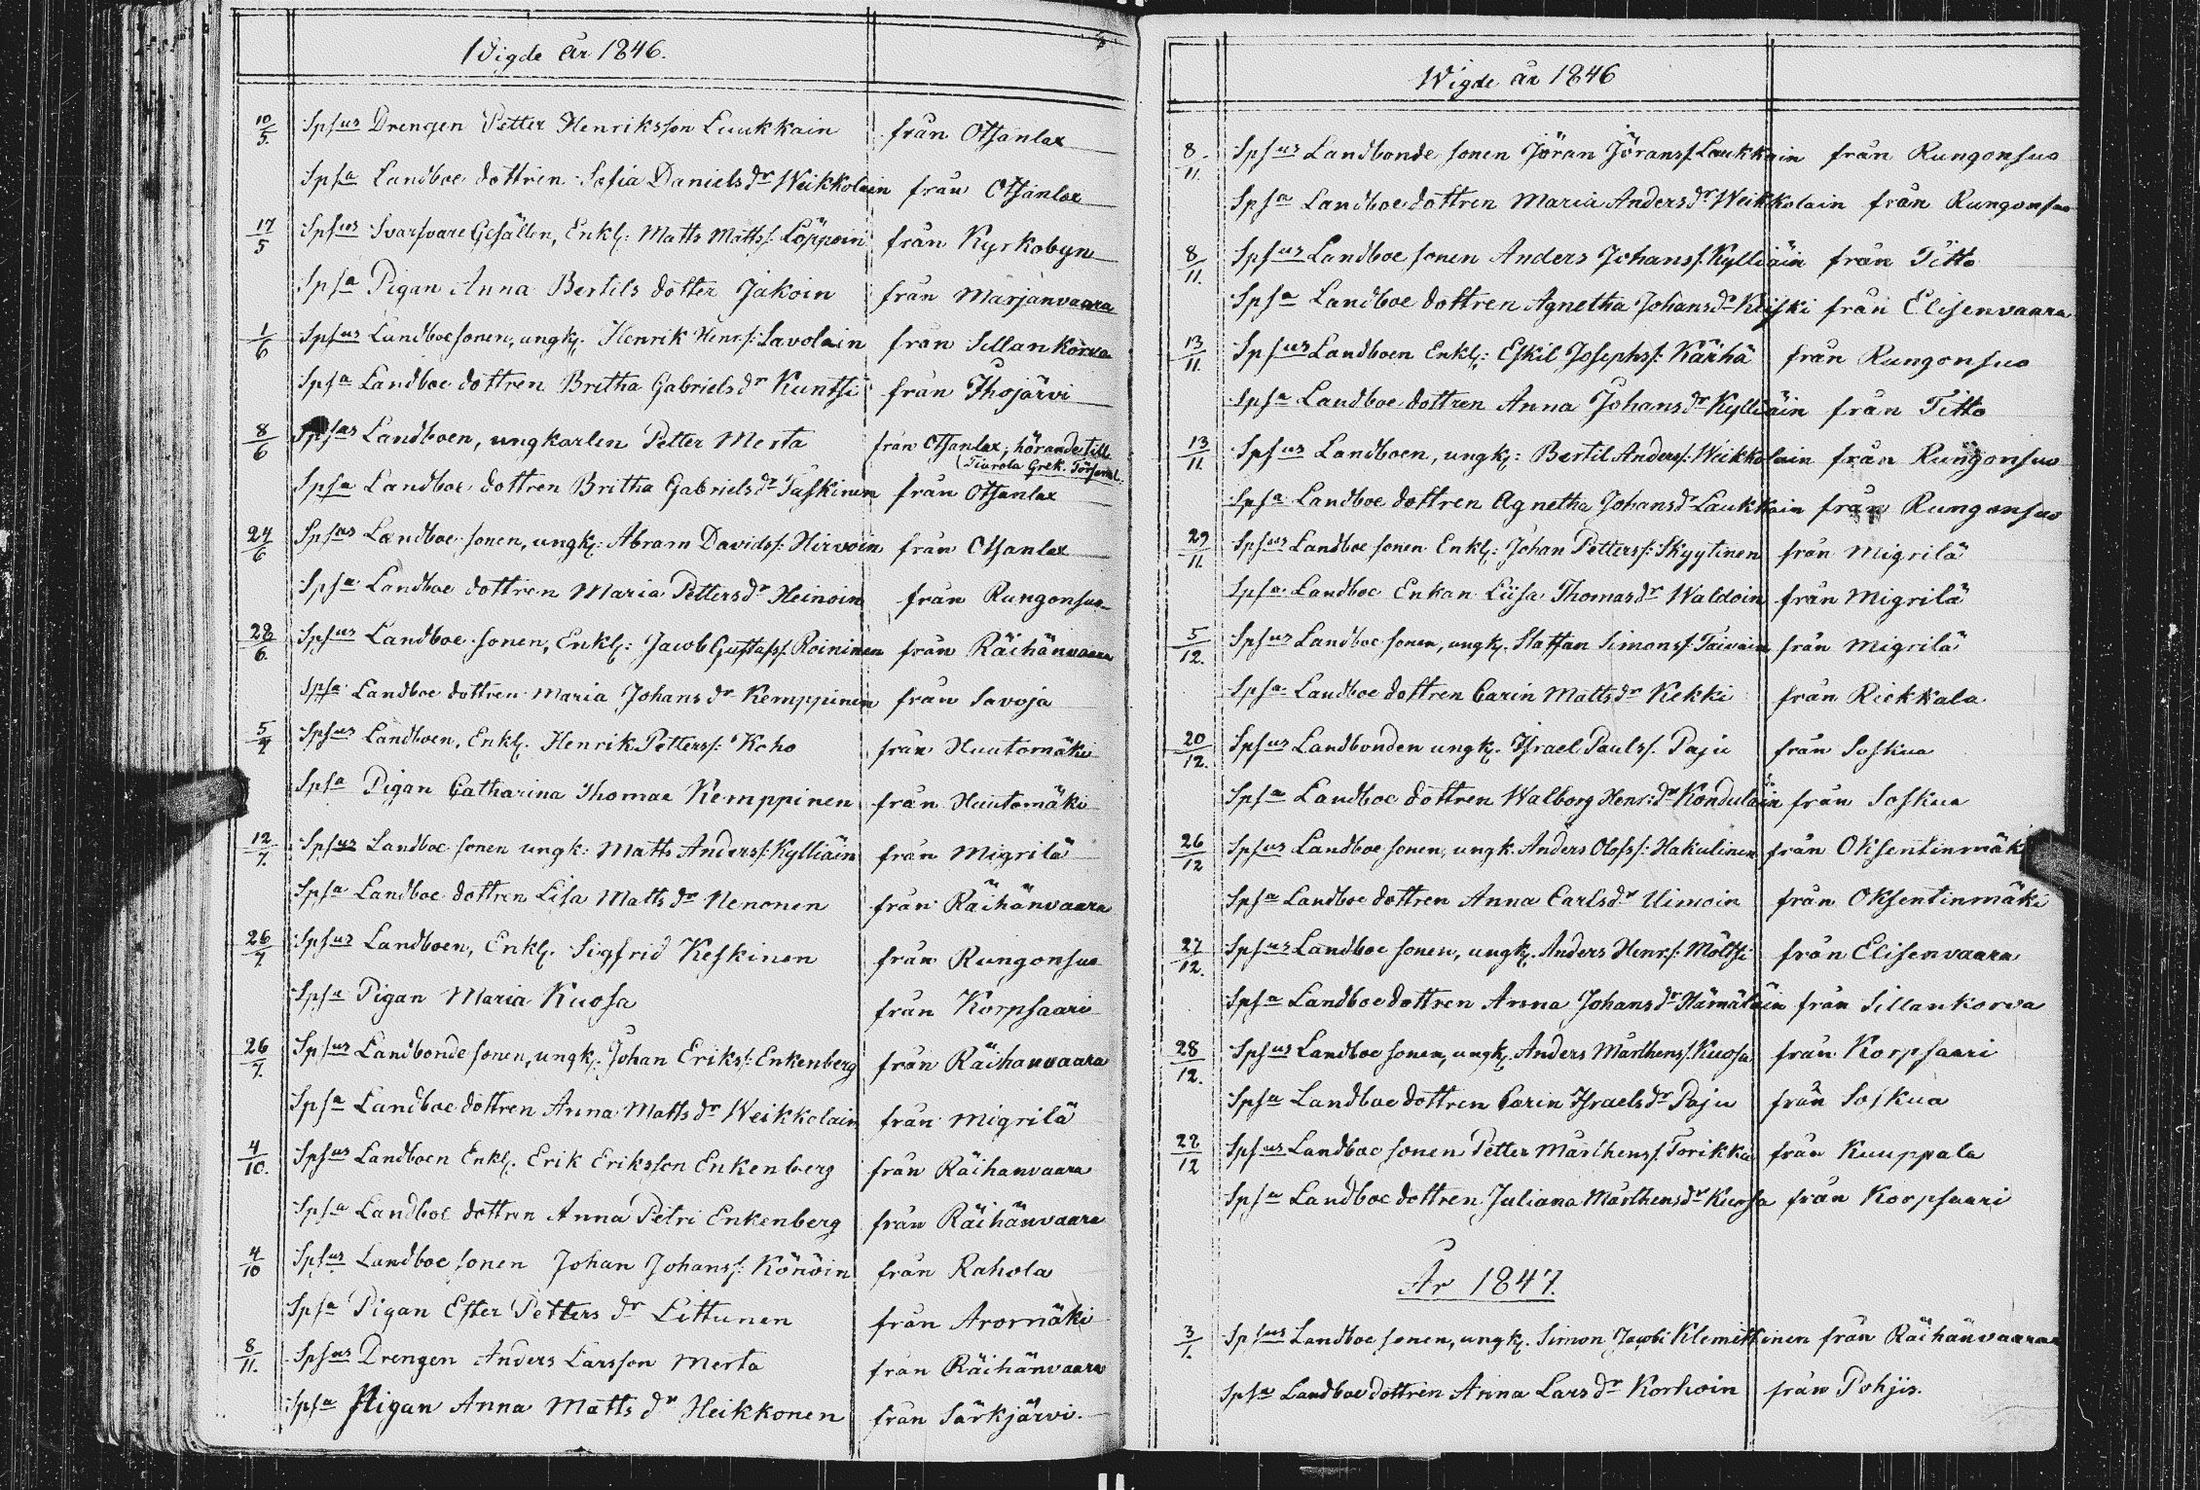 Vigde år 1846.
10/5. Spsus Drengen Petter Henriksson Luukkain från Otsanlax
Spsa Landboe dottren Sofia Daniels dr Weikkolain från Otsanlax
17/5 Spsus Svarfvare Gesällen, Enkl: Matts Mattss: Löppöin från Kyrkobyn
Spsa Pigan Anna Bertils dotter Jakoin från Marjanvaara
1/6 Spsus Landboe sonen, ungk. Henrik Henrs: Savolain från Sillankorva
Spsa Landboe dottren Britha Gabriels dr Kuntsi från Ihojärvi
8/6 Spsus Landboen, ungkarlen Petter Merta från Otsanlax, hörande till
Tiurola Grek. Församl.
Spsa Landboe dottren Britha Gabriels dr Taskinen från Otsanlax
24/6 Spsus Landboe sonen, ungk: Abram Davidss: Hirvoin från Otsanlax
Spsa Landboe dottren Maria Petters dr Heinoin från Rungonsuo
28/6. Spsus Landboe sonen, Enkl: Jacob Gustafss: Roininen från Räihänvaara
Spsa Landboe dottren Maria Johans dr Kemppinen från Savoja
5/7 Spsus Landboen, Enkl. Henrik Petterss: Koho från Huutomäki
Spsa Pigan Catharina Thomae Kemppinen från Huutomäki
12/7. Spsus Landboe sonen ungk: Matts Anderss: Kylliäin från Migrilä
Spsa Landboe dottren Lisa Matts dr Nenonen från Räihänvaara
26/7 Spsus Landboen, Enkl. Sigfrid Keskinen från Rungonsuo
Spsa Pigan Maria Kuosa från Korpsaari
26/7. Spsus Landbonde sonen, ungk: Johan Eriks: Enkenberg från Räihanvaara
Spsa Landboe dottren Anna Matts dr Weikkolain från Migrilä
4/10. Spsus Landboen Enkl. Erik Eriksson Enkenberg från Räihanvaara
Spsa Landboe dottren Anna Petri Enkenberg från Räihänvaara
4/10 Spsus Landboe sonen Johan Johanss: Könöin från Rahola
Spsa Pigan Ester Petters dr Littunen från Aromäki
8/11. Spsus Drengen Anders Larsson Merta från Räihänvaara
Spsa Pigan Anna Matts dr Heikkonen från Särkjärvi.
Wigde år 1846
8/11. Spsus Landbonde sonen Jöran Jöranss. Laukkain från Rungonsuo
Spsa Landboe dottren Maria Anders dr Weikkolain från Rungonsuo
8/11. Spsus Landboe sonen Anders Johanss. Kylliäin från Titto
Spsa Landboe dottren Agnetha Johans dr Keiski från Elisenvaara
13/11. Spsus Landboen Enkl: Eskil Josephs: Kärhä från Rungonsuo
Spsa Landboe dottren Anna Johans dr Kylliäin från Titto
13/11. Spsus Landboen, ungk: Bertil Anderss: Weikkolain från Rungonsuo
Spsa Landboe dottren Agnetha Johans dr Laukkain från Rungonsuo
29/11. Spsus Landboe sonen Enkl: Johan Petterss: Skyytinen från Migrilä
Spsa Landboe Enkan Liisa Thomas dr Waldoin från Migrilä
5/12. Spsus Landboe sonen, ungk. Staffan Simonss: Taivain från Migrilä
Spsa Landboe dottren Carin Matts dr Kekki från Riekkala
20/12. Spsus Landbonden ungk. Israel Pauls. Paju från Soskua
Spsa Landboe dottren Walborg Henr: dr Kondulain från Soskua
26/12 Spsus Landboe sonen, ungk. Anders Olofss: Hakulinen från Oksentinmäki
Spsa Landboe dottren Anna Carls dr Uimoin från Oksentinmäki
27/12. Spsus Landboe sonen, ungk. Anders Henr: Möltsi från Elisenvaara
Spsa Landboe dottren Anna Johans dr Hämäläin från Sillankorva
28/12. Spsus Landboe sonen, ungk. Anders Mårthens. Kuosa från Korpsaari
Spsa Landboe dottren Carin Israels dr Paju från Soskua
28/12 Spsus Landboe sonen Petter Mårthens. Torikka från Kuuppala
Spsa Landboe dottren Juliana Mårthens dr Kuosa från Korpsaari
År 1847.
3/1. Spsus Landboe sonen, ungk. Simon Jacobi Klemittinen från Räihänvaara
Spsa Landboe dottren Anna Lars dr Korhoin från Pohjis.